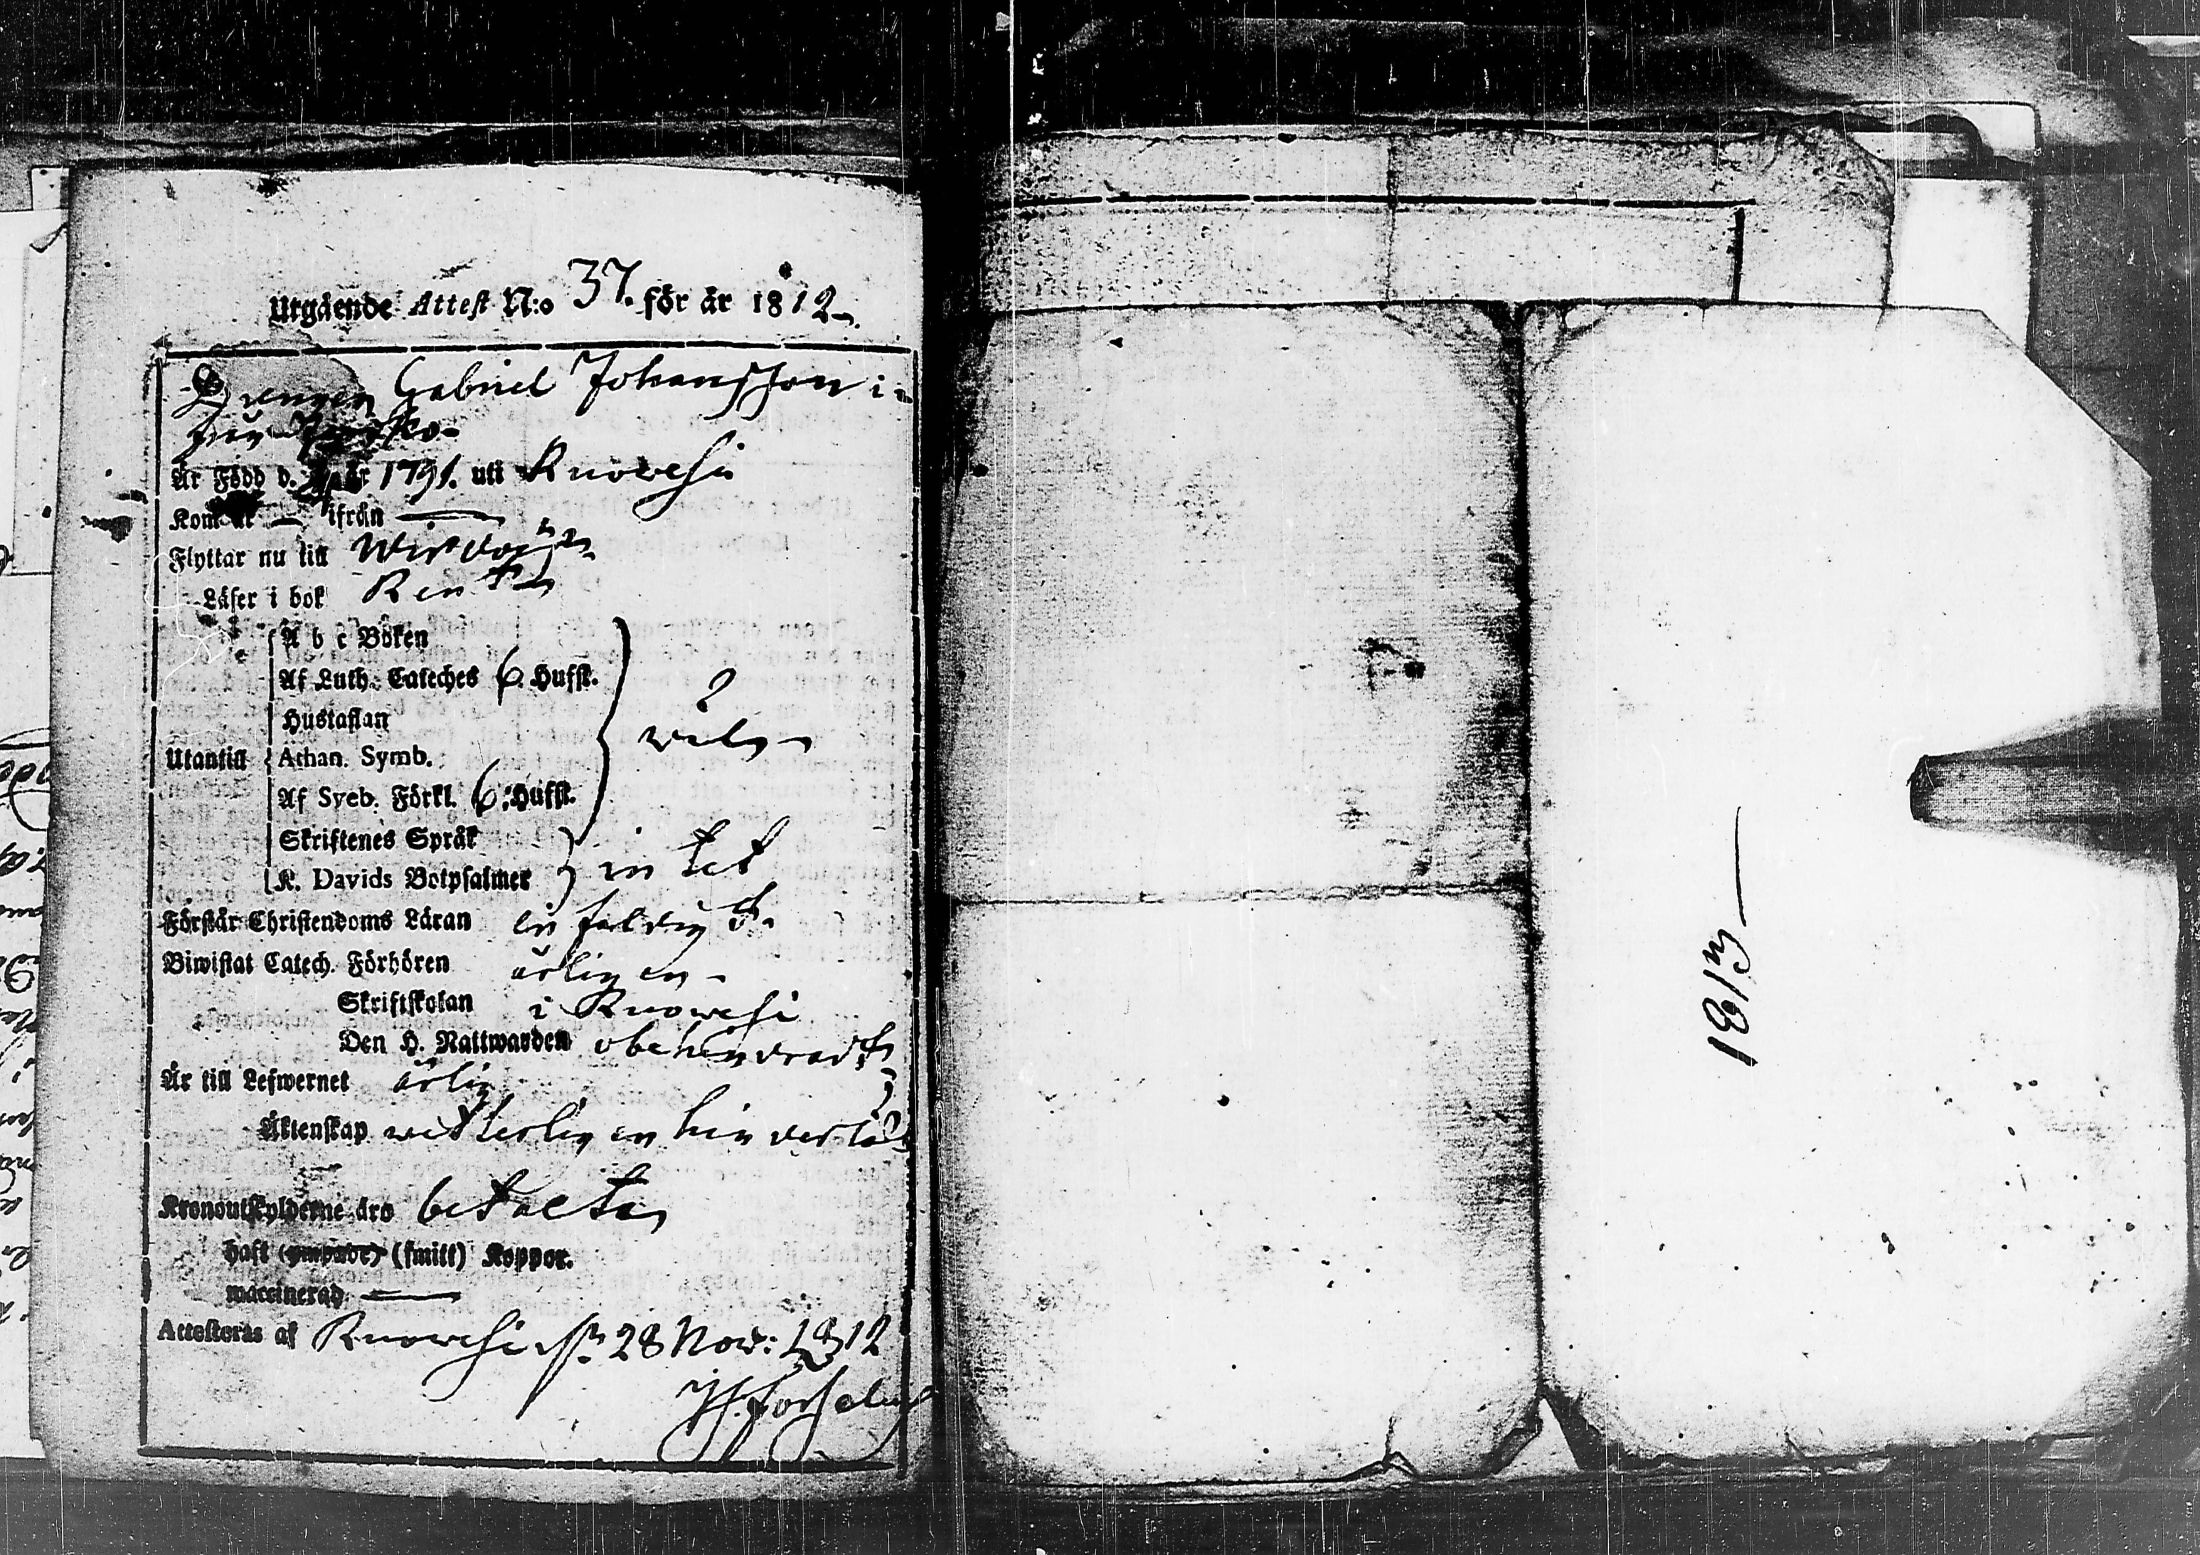 Utgående Attest N:o 37. för år 1812
Drengen Gabriel Johansson i
från
Är Född d. år 1791. uti Ruovesi
Kom år — ifrån —
Flyttar nu till Wirdois
Läser i bok Rent
A b c Boken
Af Luth. Cateches 6. Hufst.
Hustaflan
wäl
Utantill Athan. Symb.
Af Sveb. Förkl. 6. Hufst.
Skriftenes Språk
K. Davids Botpsalmer intet
Förstår Christendoms Läran enfaldigt
Biwistat Catech. Förhören årligen
Skriftskolan i Ruovesi
Den H. Nattwarden obehindradt
Är till Lefwernet ärlig
Äktenskap wetterligen hinderlös
Kronoutskylderne äro betalta
haft (ympade) (smitt) Koppor.
waccinerad —
Attesteras af Ruovesi d. 28 Nov: 1812
1813